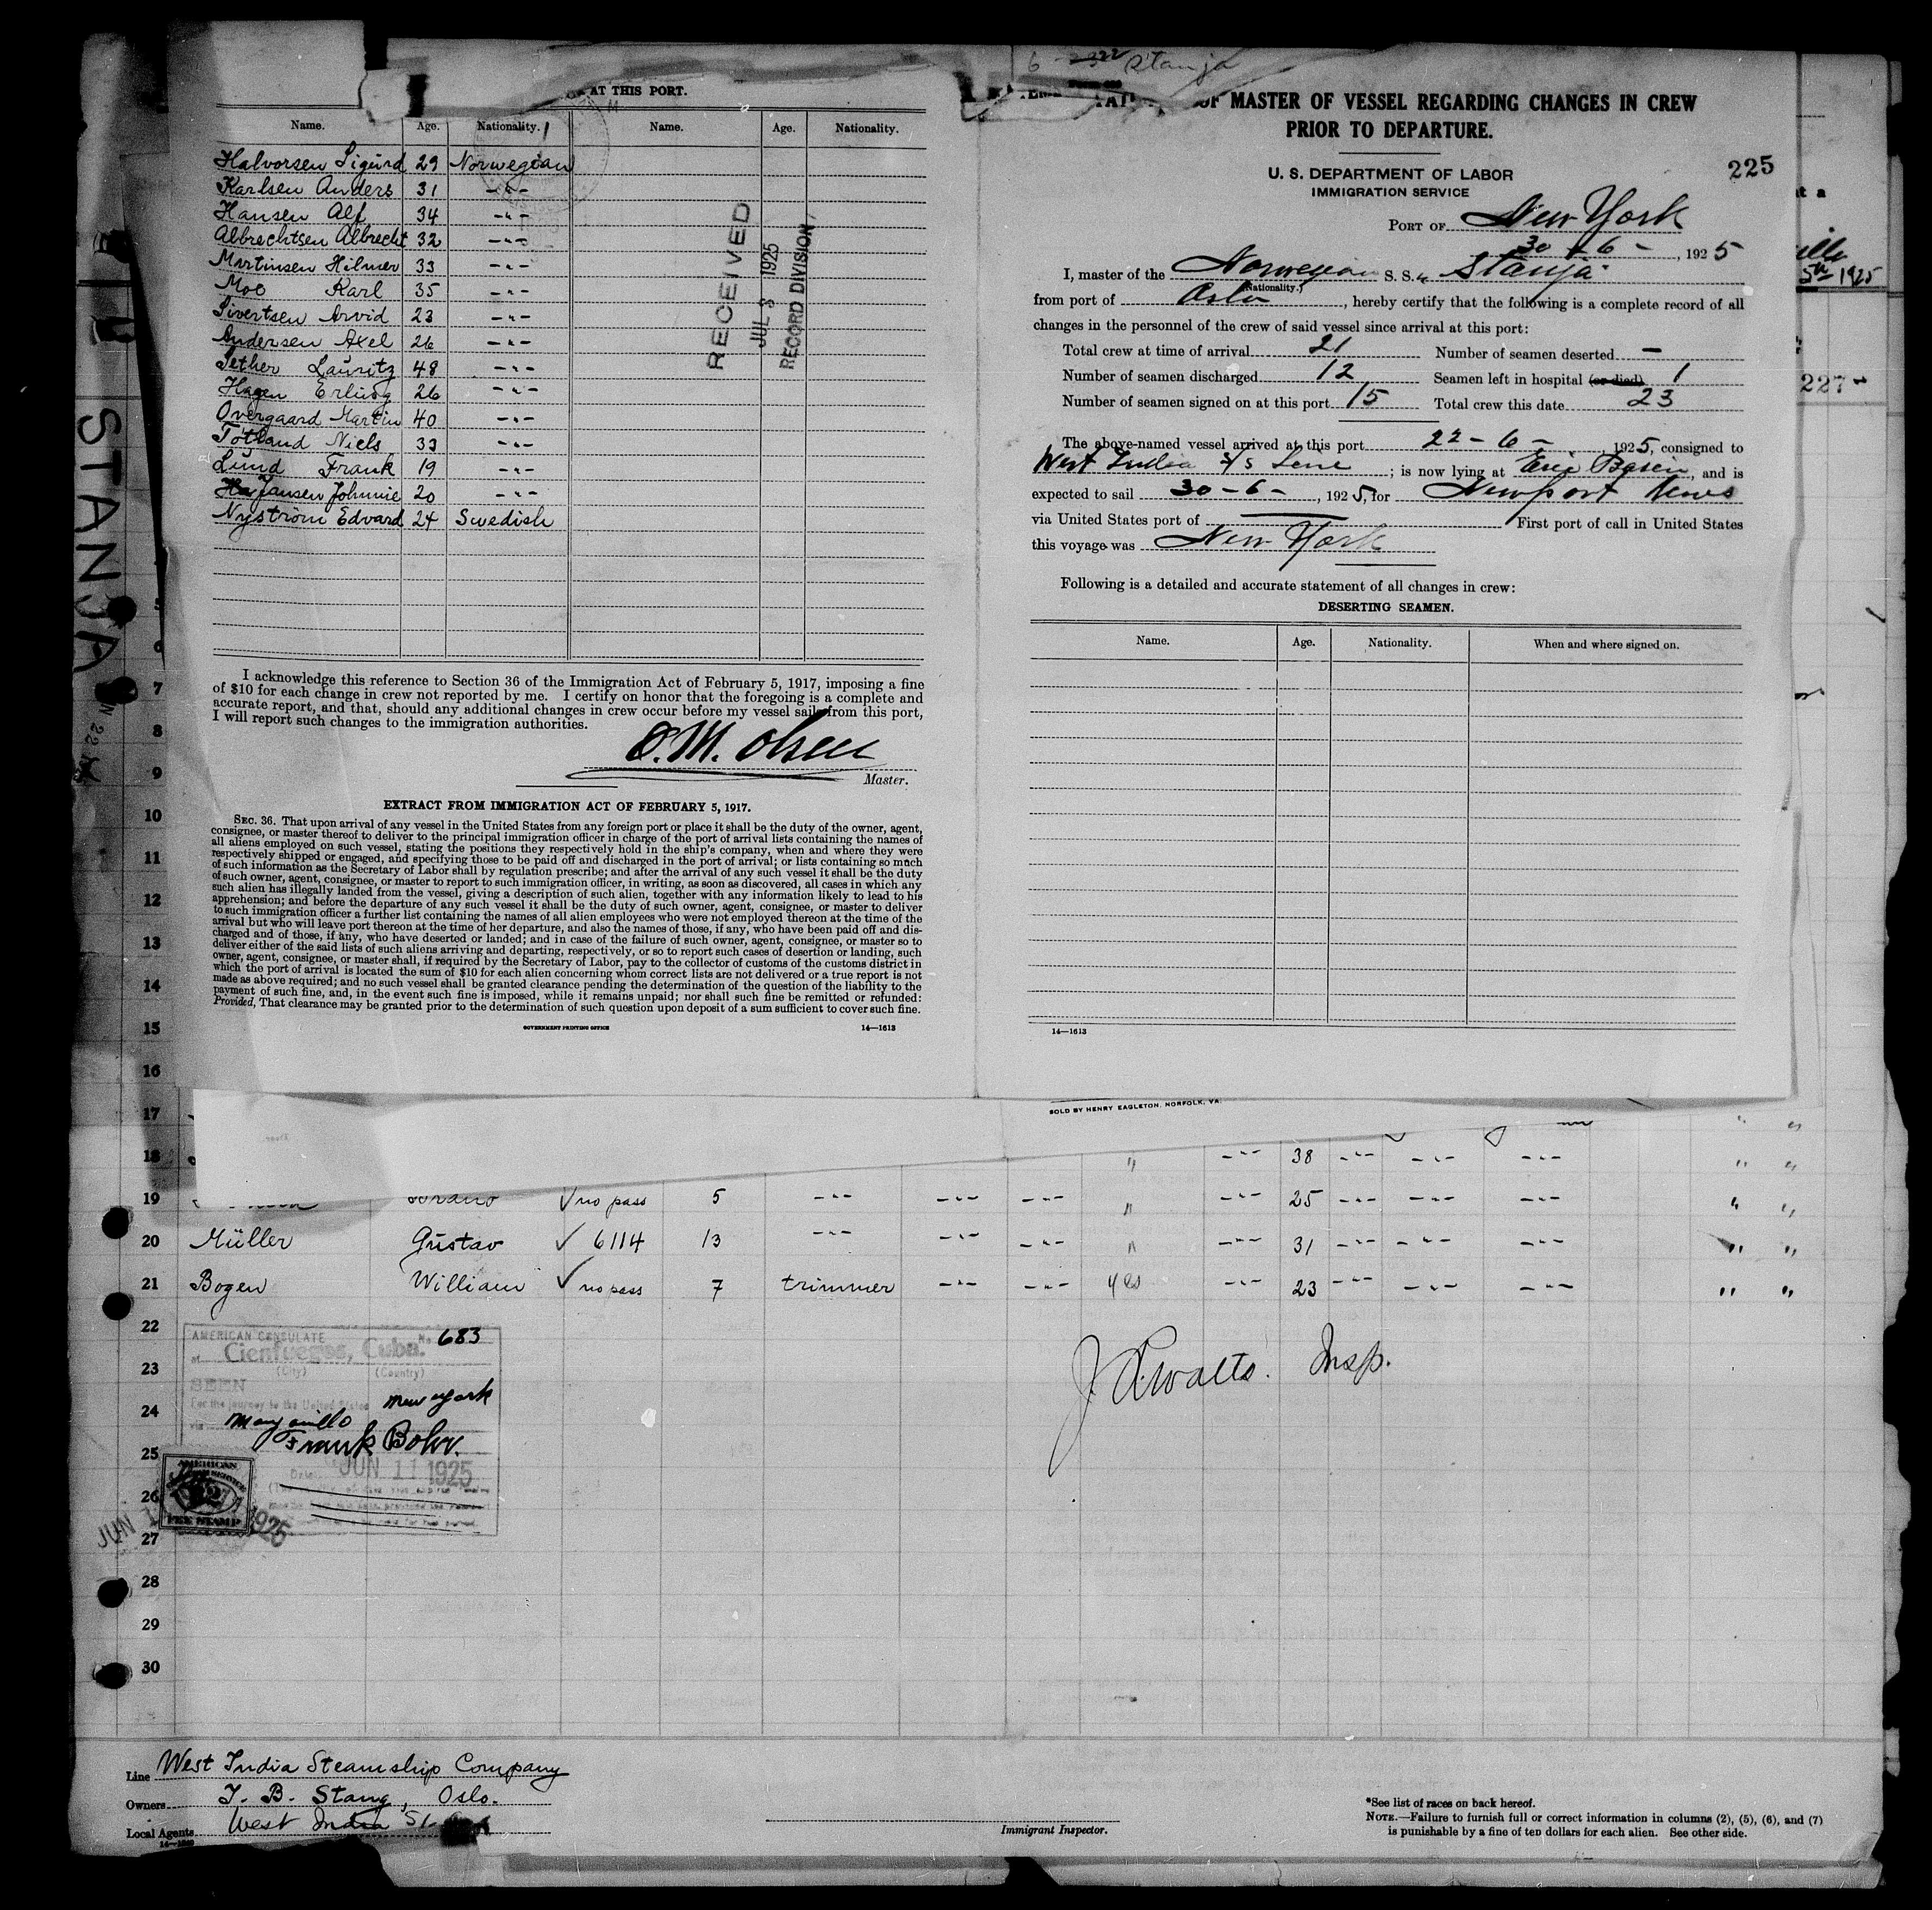 AT THIS PORT.
Name. Age. Nationality. Name. Age. Nationality.
Halvorsen Sigurd 29 Norwegian
Karlsen Anders 31 -"-
Hansen Alf 34 -"-
Albrechtsen Albrecht 32 -"-
Martinsen Hilmer 33 -"-
Moe Karl 35 -"-
Sivertsen Arvid 23 -"-
Andersen Axel 26 -"-
Sether Lauritz 48 -"-
Hagen Erling 26 -"-
Overgaard Martin 40 -"-
Totland Niels 33 -"-
Lund Frank 19 -"-
Jansen Johnnie 20 -"-
Nyström Edvard 24 Swedish
RECEIVED
JUL 3 1925
RECORD DIVISION
I acknowledge this reference to Section 36 of the Immigration Act of February 5, 1917, imposing a fine
of $10 for each change in crew not reported by me. I certify on honor that the foregoing is a complete and
accurate report, and that, should any additional changes in crew occur before my vessel sails from this port,
I will report such changes to the immigration authorities.
O. M. Olsen
Master.
EXTRACT FROM IMMIGRATION ACT OF FEBRUARY 5, 1917.
SEC. 36. That upon arrival of any vessel in the United States from any foreign port or place it shall be the duty of the owner, agent,
consignee, or master thereof to deliver to the principal immigration officer in charge of the port of arrival lists containing the names of
all aliens employed on such vessel, stating the positions they respectively hold in the ship's company, when and where they were
respectively shipped or engaged, and specifying those to be paid off and discharged in the port of arrival; or lists containing so much
of such information as the Secretary of Labor shall by regulation prescribe; and after the arrival of any such vessel it shall be the duty
of such owner, agent, consignee, or master to report to such immigration officer, in writing, as soon as discovered, all cases in which any
such alien has illegally landed from the vessel, giving a description of such alien, together with any information likely to lead to his
apprehension; and before the departure of any such vessel it shall be the duty of such owner, agent, consignee, or master to deliver
to such immigration officer a further list containing the names of all alien employees who were not employed thereon at the time of the
arrival but who will leave port thereon at the time of her departure, and also the names of those, if any, who have been paid off and dis-
charged and of those, if any, who have deserted or landed; and in case of the failure of such owner, agent, consignee, or master so to
deliver either of the said lists of such aliens arriving and departing, respectively, or so to report such cases of desertion or landing, such
owner, agent, consignee, or master shall, if required by the Secretary of Labor, pay to the collector of customs of the customs district in
which the port of arrival is located the sum of $10 for each alien concerning whom correct lists are not delivered or a true report is not
made as above required; and no such vessel shall be granted clearance pending the determination of the question of the liability to the
payment of such fine, and, in the event such fine is imposed, while it remains unpaid; nor shall such fine be remitted or refunded:
Provided, That clearance may be granted prior to the determination of such question upon deposit of a sum sufficient to cover such fine.
GOVERNMENT PRINTING OFFICE 14—1613
Stanja
OF MASTER OF VESSEL REGARDING CHANGES IN CREW
PRIOR TO DEPARTURE.
U. S. DEPARTMENT OF LABOR
IMMIGRATION SERVICE
225
PORT OF New York
30 - 6 - , 1925
I, master of the Norwegian S. S. "Stanja"
(Nationality.)
from port of Oslo, hereby certify that the following is a complete record of all
changes in the personnel of the crew of said vessel since arrival at this port:
Total crew at time of arrival 21 Number of seamen deserted —
Number of seamen discharged 12 Seamen left in hospital (or died) 1
Number of seamen signed on at this port 15 Total crew this date 23
The above-named vessel arrived at this port 22 - 6 - 1925, consigned to
West India S/S Line; is now lying at Erie Basin, and is
expected to sail 30 - 6 - , 1925, for Newport News
via United States port of — First port of call in United States
this voyage was New York
Following is a detailed and accurate statement of all changes in crew:
DESERTING SEAMEN.
Name. Age. Nationality. When and where signed on.
14—1613
STANJA
227
1925
SOLD BY HENRY EAGLETON, NORFOLK, VA.
6
7
8
9
10
11
12
13
14
15
16
17
18 " -"- 38 -"- -"- -"- " "
19 no pass 5 -"- -"- -"- " -"- 25 -"- -"- -"- " "
20 Müller Gustav ✓ 6114 13 -"- -"- -"- " -"- 31 -"- -"- -"- " "
21 Bogen William ✓ no pass 7 trimmer -"- -"- yes -"- 23 -"- -"- -"- " "
22
23
24
25
26
27
28
29
30
AMERICAN CONSULATE No. 683
at Cienfuegos, Cuba.
(City) (Country)
SEEN
For the journey to the United States New York
via Manzanillo
Frank Bohr.
Date JUN 11 1925
AMERICAN
SERVICE
FEE STAMP
JUN 1925
Insp.
Line West India Steamship Company
Owners J. B. Stang, Oslo.
Local Agents West India St.
*See list of races on back hereof.
NOTE.—Failure to furnish full or correct information in columns (2), (5), (6), and (7)
is punishable by a fine of ten dollars for each alien. See other side.
Immigrant Inspector.